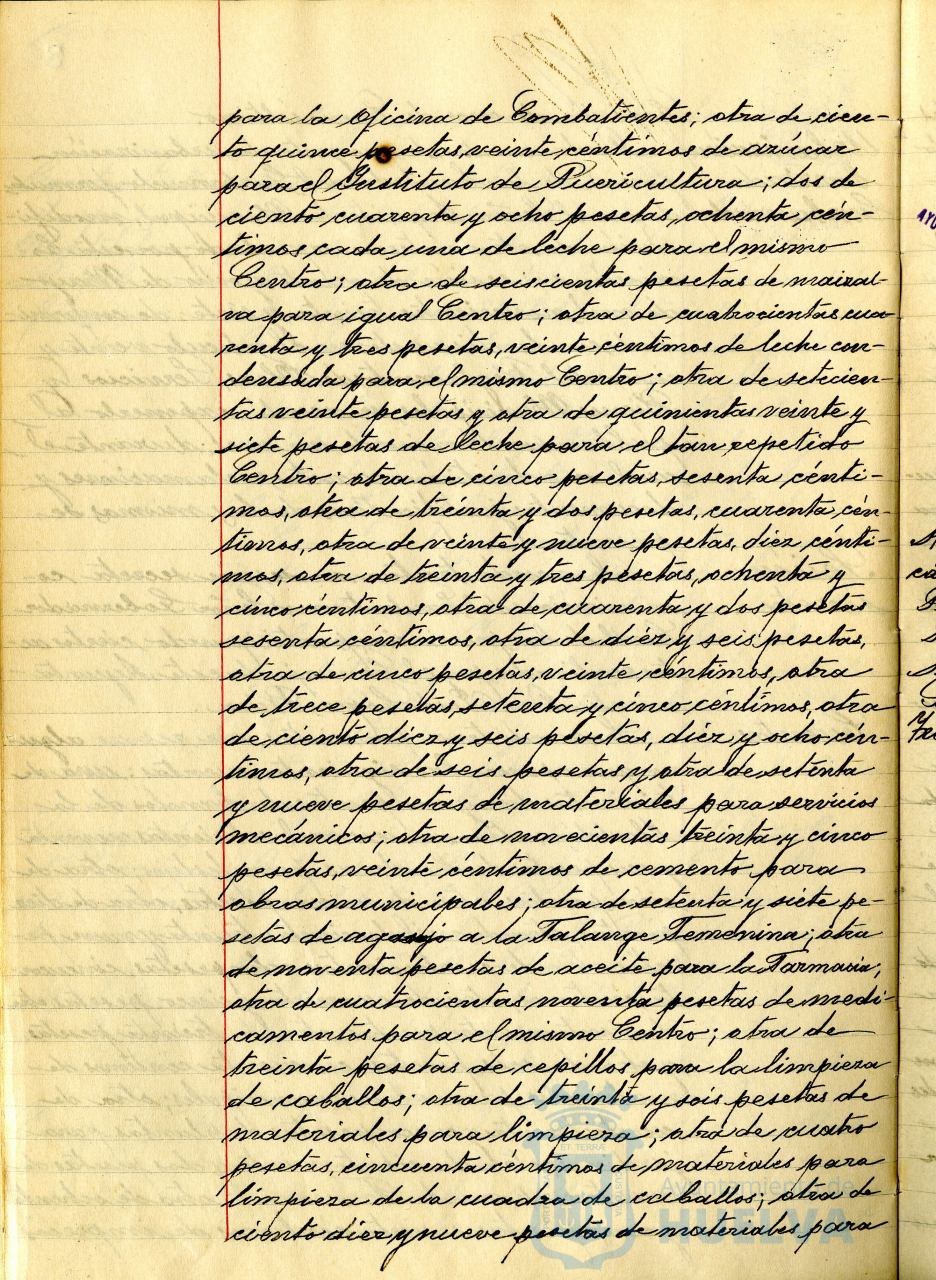 para la Oficina de Combatientes; otra de cien-
to quince pesetas, veinte céntimos de azúcar
para el Instituto de Puericultura; dos de
ciento cuarenta y ocho pesetas, ochenta cén-
timos cada una de leche para el mismo
Centro; otra de seiscientas pesetas de maizal-
va para igual Centro; otra de cuatrocientas cua-
renta y tres pesetas, veinte céntimos de leche con-
densada para el mismo Centro; otra de setecien-
tas veinte pesetas y otra de quinientas veinte y
siete pesetas de leche para el tan repetido
Centro; otra de cinco pesetas, sesenta cénti-
mos, otra de treinta y dos pesetas, cuarenta cén-
timos, otra de veinte y nueve pesetas, diez cénti-
mos, otra de treinta y tres pesetas, ochenta y
cinco céntimos, otra de cuarenta y dos pesetas
sesenta céntimos, otra de diéz y seis pesetas,
otra de cinco pesetas, veinte céntimos, otra
de trece pesetas, setenta y cinco céntimos, otra
de ciento diez y seis pesetas, diez y ocho cén-
timos, otra de seis pesetas y otra de setenta
y nueve pesetas de materiales para servicios
mecánicos; otra de novecientas treinta y cinco
pesetas, veinte céntimos de cemento para
obras municipales; otra de setenta y siete pe-
setas de agasajo a la Falange Femenina; otra
de noventa pesetas de aceite para la Farmacia;
otra de cuatrocientas noventa pesetas de medi-
camentos para el mismo Centro; otra de
treinta pesetas de cepillos para la limpieza
de caballos; otra de treinta y seis pesetas de
materiales para limpieza; otra de cuatro
pesetas, cincuenta céntimos de materiales para
limpieza de la cuadra de caballos; otra de
ciento diez y nueve pesetas de materiales para
Ayuntamiento de
HUELVA